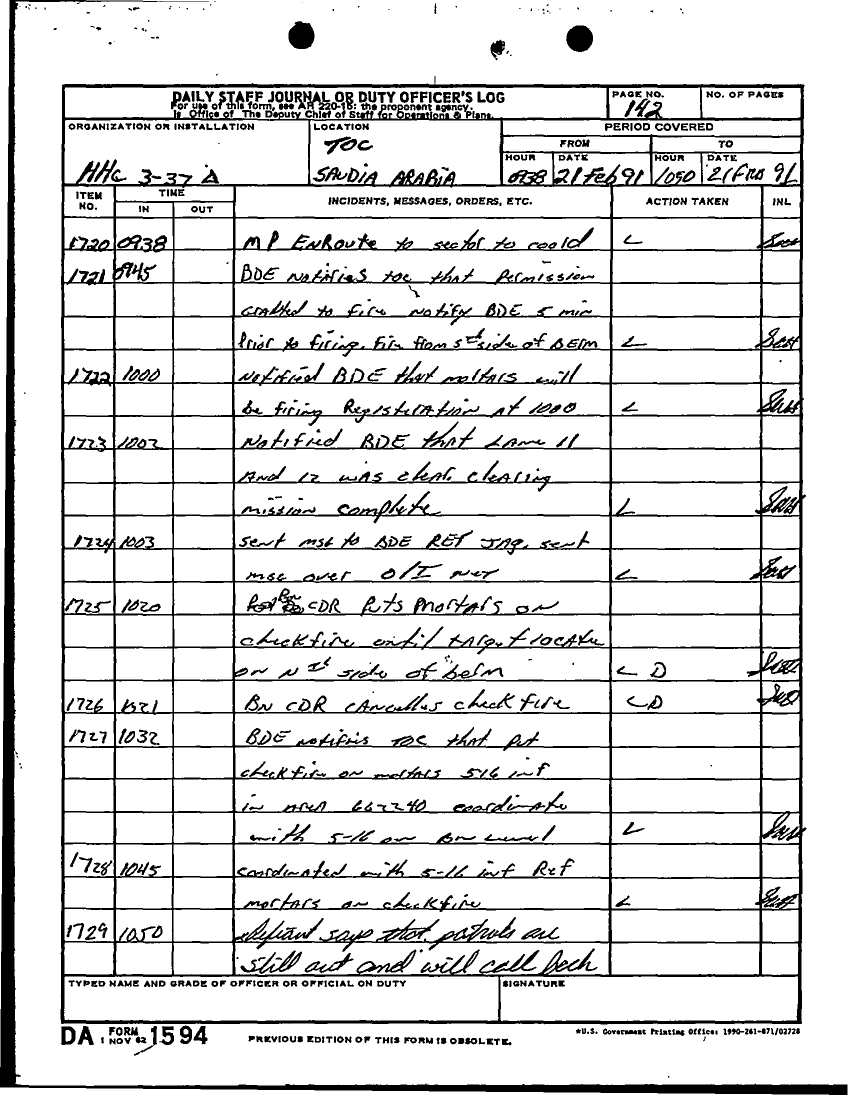 DAILY STAFF JOURNAL OR DUTY OFFICER'S LOG
For use of this form, see AR 220-15: the proponent agency.
Is Office of The Deputy Chief of Staff for Operations & Plans.
PAGE NO.
142
NO. OF PAGES
ORGANIZATION OR INSTALLATION
HHC 3-37 A
LOCATION
TOC
SAUDIA ARABIA
PERIOD COVERED
FROM
TO
HOUR DATE HOUR DATE
0938 21 Feb 91 1050 21 91
ITEM NO. TIME IN OUT INCIDENTS, MESSAGES, ORDERS, ETC. ACTION TAKEN INL
1720 0938 MP EnRoute to sector to L
1721 0945 BDE Notifies toc that Permission
to fire Notify BDE 5 min
Prior to firing. Fire from side of BERM L
1722 1000 Notified BDE that mortars will
be firing Registeration at 1000 L
1723 1002 Notified BDE that Lane 11
And 12 was clear. clearing
mission complete L
1724 1003 sent msg to BDE REF JAG. sent
msg over O/I Net L
1725 1020 Bn CDR Puts Mortars on
checkfire until target locate
on Nth side of berm L D
1726 1021 BN CDR cancelles check fire L D
1727 1032 BDE notifis TOC that put
checkfire on mortars 5-16 inf
in area 662240 coordinate
with 5-16 on Bn Level L
1728 1045 coordinated with 5-16 inf Ref
mortars on checkfire L
1729 1050 Defiant says that patrols are
still out and will call back
TYPED NAME AND GRADE OF OFFICER OR OFFICIAL ON DUTY
SIGNATURE
DA FORM 1 NOV 62 1594
PREVIOUS EDITION OF THIS FORM IS OBSOLETE.
*U.S. Government Printing Office: 1990-261-871/02728